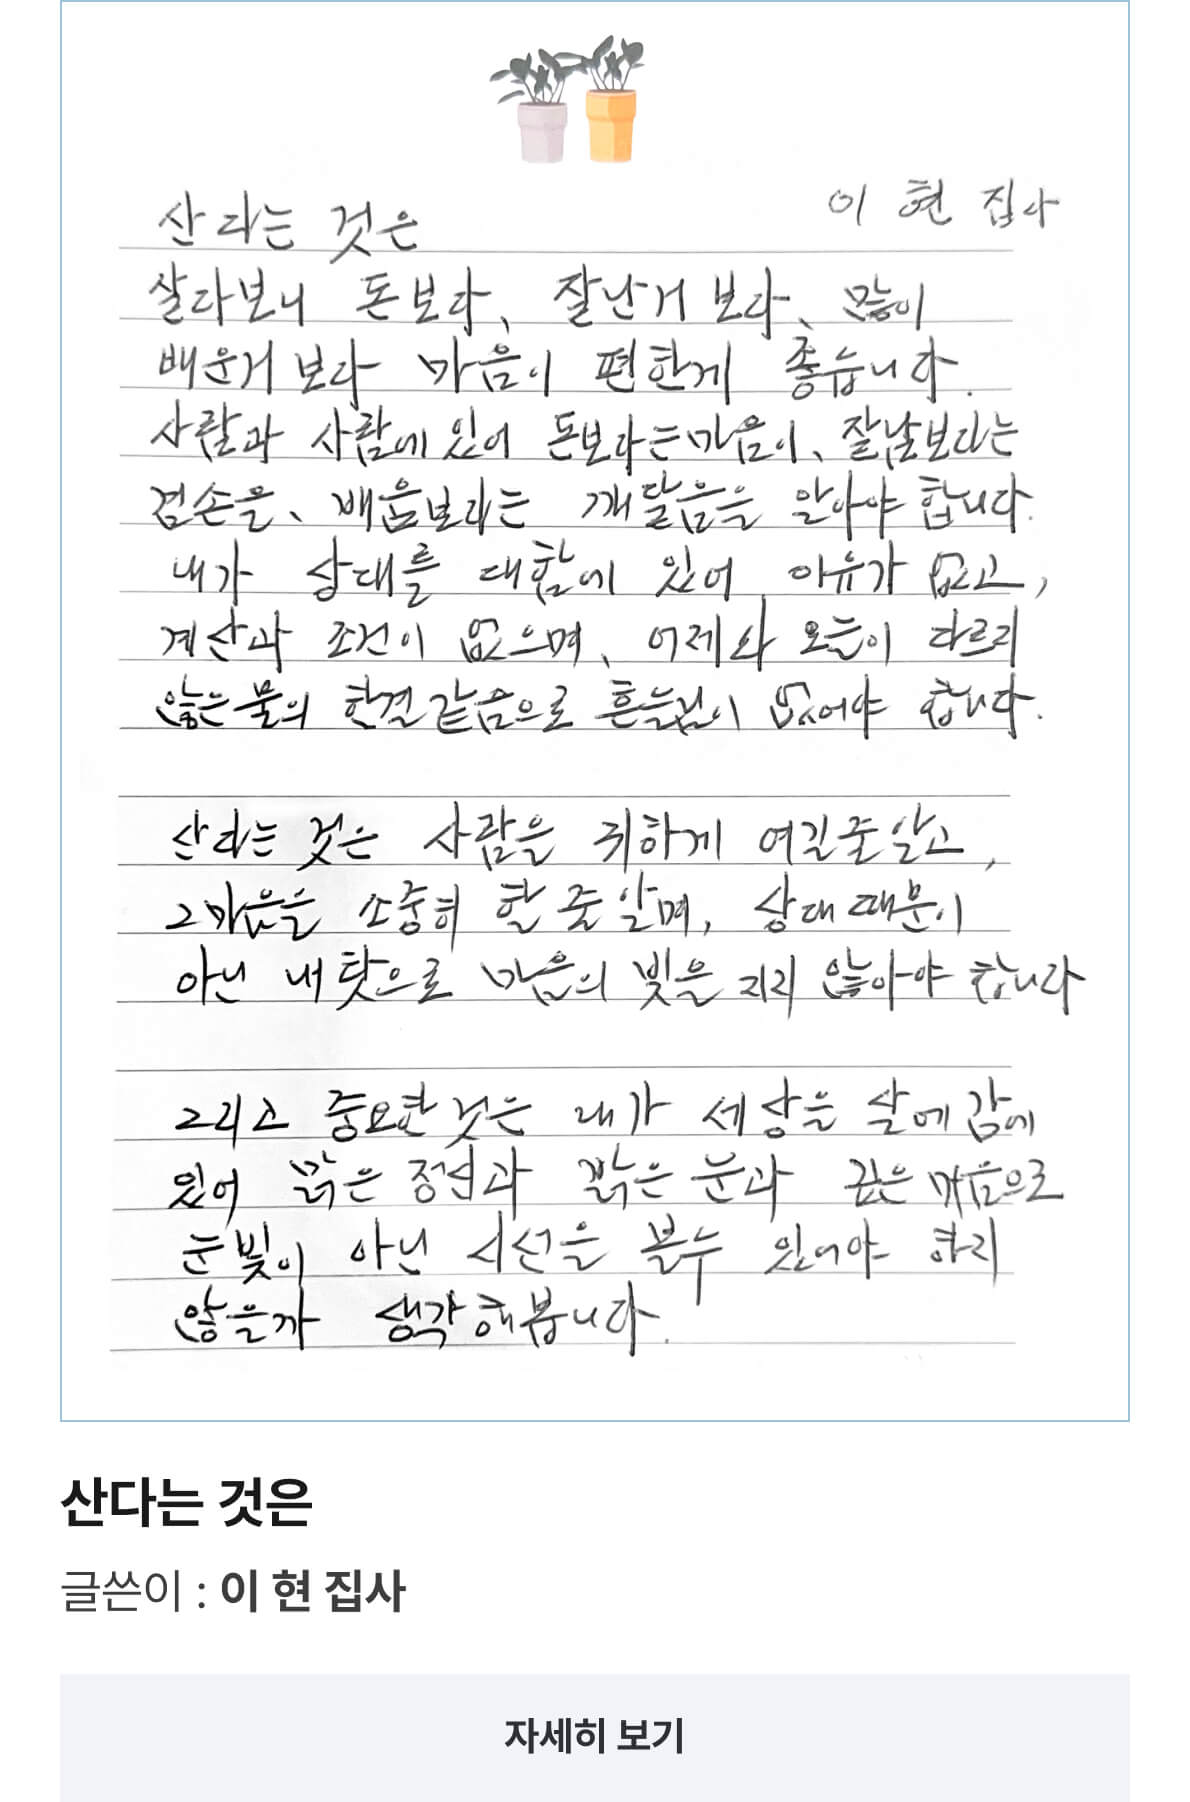 이 현 집사
산다는 것은
살다보니 돈보다, 잘난거 보다, 많이
배운거 보다 마음이 편한게 좋습니다.
사람과 사람에 있어 돈보다는 마음이, 잘남보다는
겸손을, 배움보다는 깨달음을 알아야 합니다.
내가 상대를 대함에 있어 이유가 없고,
계산과 조건이 없으며, 어제와 오늘이 다르지
않은 물의 한결같음으로 흔들림이 없어야 합니다.
산다는 것은 사람을 귀하게 여길줄 알고,
그 마음을 소중히 할 줄 알며, 상대 때문이
아닌 내 탓으로 마음의 빚을 지지 않아야 합니다
그리고 중요한 것은 내가 세상을 살에감에
있어 맑은 정신과 밝은 눈과 깊은 마음으로
눈빛이 아닌 시선을 볼수 있어야 하지
않을까 생각해봅니다.
산다는 것은
글쓴이 : 이 현 집사
자세히 보기